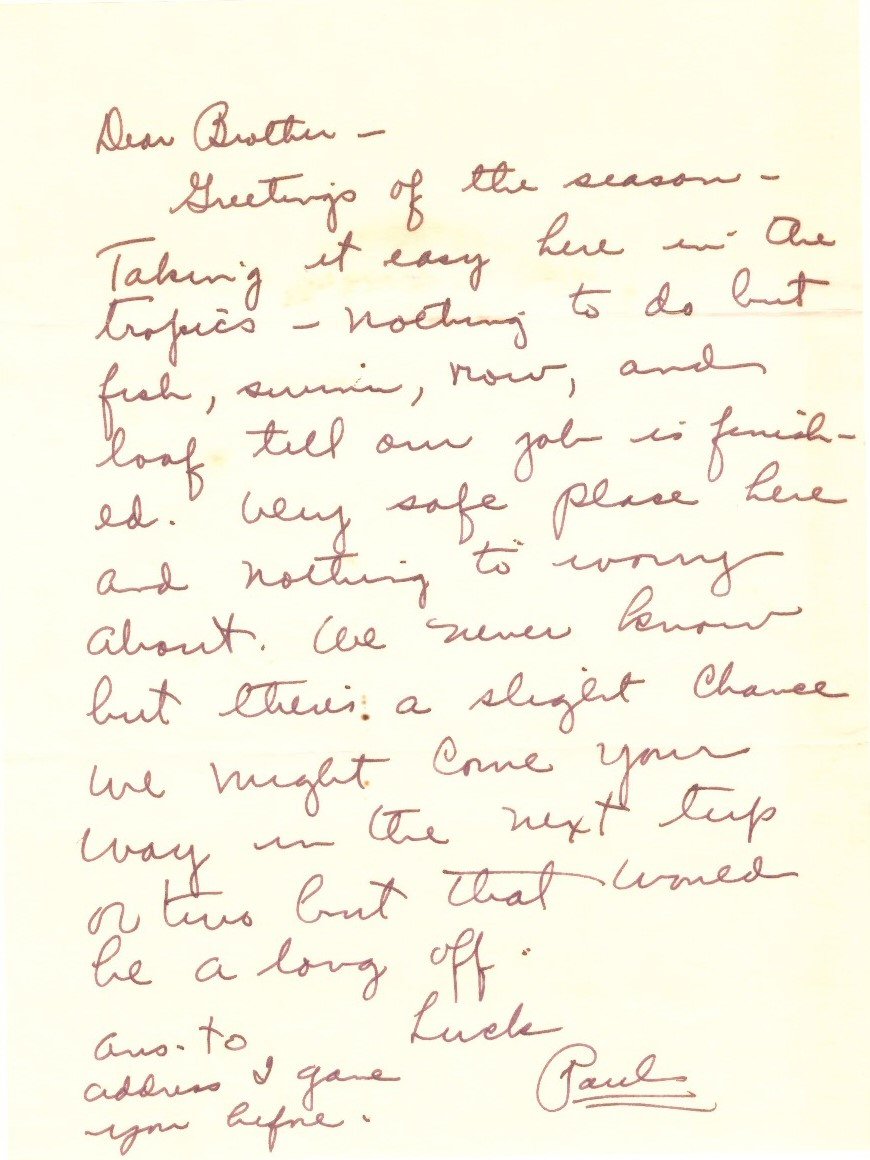 Dear Brother -
Greetings of the season -
Taking it easy here in the
tropics - nothing to do but
fish, swim, row, and
loaf till our job is finish-
ed. Very safe place here
and nothing to worry
about. We never know
but there's a slight chance
we might come your
way in the next trip
or two but that would
be a long off.
Luck
Paul
Ans. to
address I gave
you before.